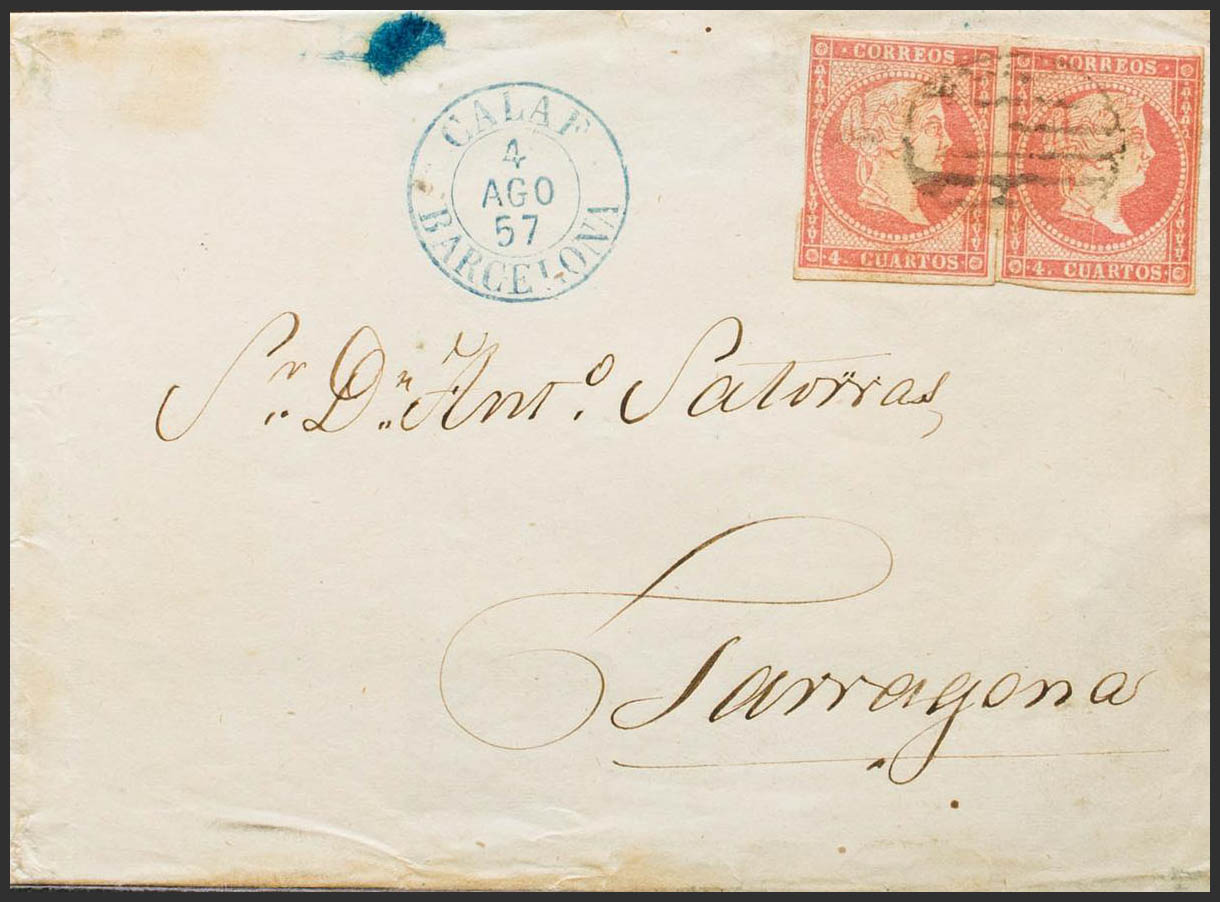 CORREOS
CORREOS
4. CUARTOS
4. CUARTOS
CALAF
4
AGO
57
BARCELONA
Sr. Dn. Anto. Satorras,
Tarragona